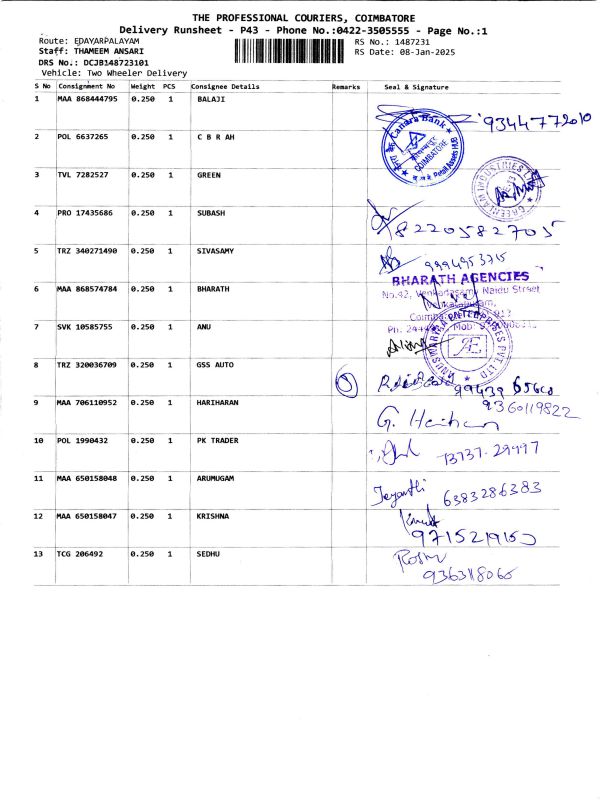 THE PROFESSIONAL COURIERS, COIMBATORE
Delivery Runsheet - P43 - Phone No.:0422-3505555 - Page No.:1
Route: EDAYARPALAYAM
RS No.: 1487231
Staff: THAMEEM ANSARI
RS Date: 08-Jan-2025
DRS No.: DCJB148723101
Vehicle: Two Wheeler Delivery
S No Consignment No Weight PCS Consignee Details Remarks Seal & Signature
1 MAA 868444795 0.250 1 BALAJI
Canara Bank
COIMBATORE
2 POL 6637265 0.250 1 C B R AH
3 TVL 7282527 0.250 1 GREEN
4 PRO 17435686 0.250 1 SUBASH 8220582705
5 TRZ 340271490 0.250 1 SIVASAMY
BHARATH AGENCIES
6 MAA 868574784 0.250 1 BHARATH
No.42, Venkadasamy Naidu Street
7 SVK 10585755 0.250 1 ANU
8 TRZ 320036709 0.250 1 GSS AUTO
9 MAA 706110952 0.250 1 HARIHARAN 9360119822
G. Hariharan
10 POL 1990432 0.250 1 PK TRADER
11 MAA 650158048 0.250 1 ARUMUGAM Jeyanthi 6383286383
12 MAA 650158047 0.250 1 KRISHNA
13 TCG 206492 0.250 1 SEDHU